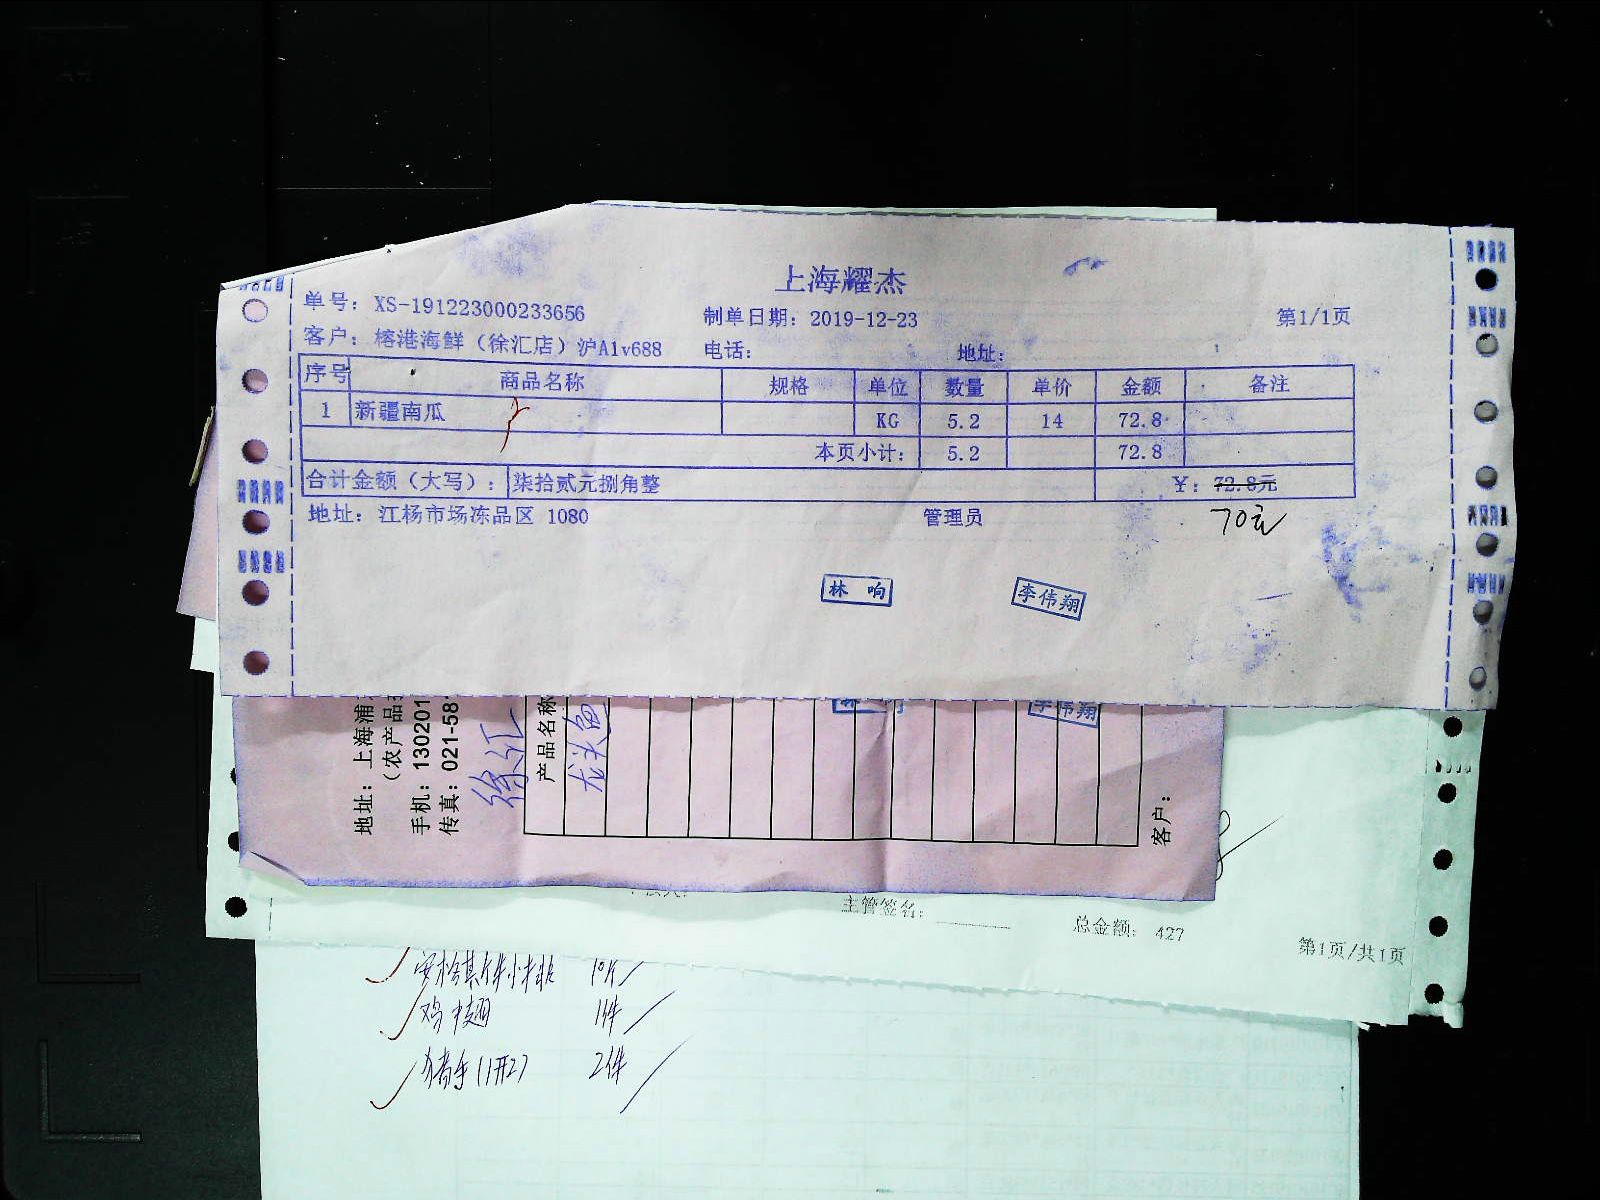 上海耀杰
单号：XS-191223000233656 制单日期：2019-12-23 第1/1页
客户：榕港海鲜（徐汇店）沪A1v688 电话： 地址：
序号 商品名称 规格 单位 数量 单价 金额 备注
1 新疆南瓜 KG 5.2 14 72.8
本页小计： 5.2 72.8
合计金额（大写）： 柒拾贰元捌角整 ￥：72.8元
地址：江杨市场冻品区 1080 管理员 70元
林响 李伟翔
李伟翔
地址：上海浦
（农产品
手机：130201
传真：021-58
徐汇
产品名称
龙头鱼
客户：
主管签名： 总金额：427
第1页/共1页
鸡中翅 1件
猪手(1开2) 2件